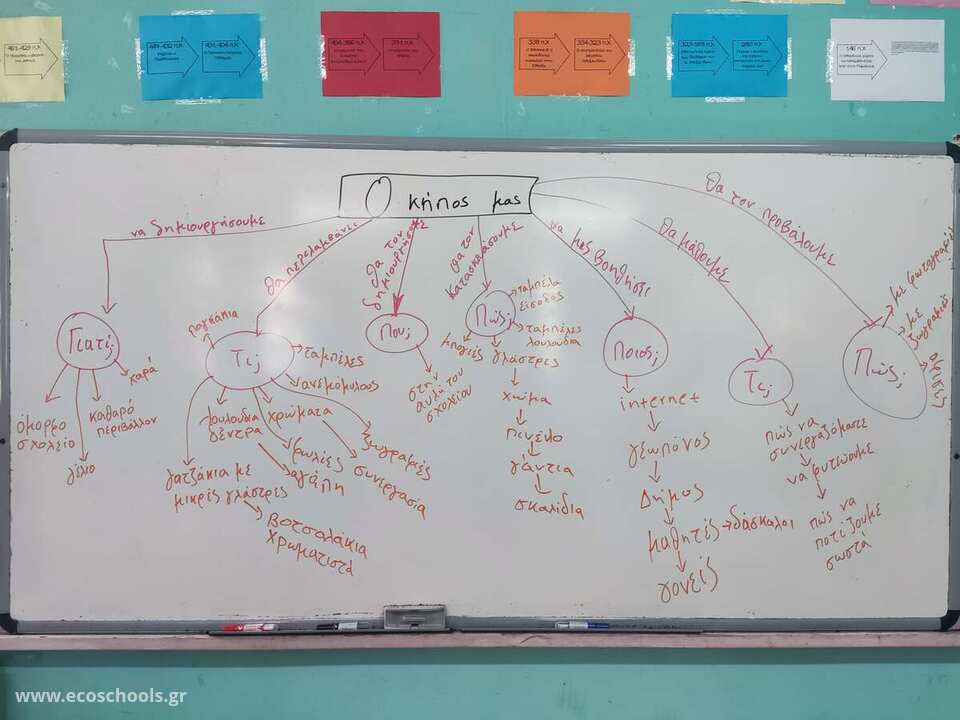 431-404 π.Χ
371 π.Χ
338 π.Χ
334-323 π.Χ
146 π.Χ
Ο κήπος μας
να δημιουργήσουμε
Γιατί;
όμορφο
σχολείο
γέλιο
καθαρό
περιβάλλον
χαρά
θα περιλαμβάνει
Τι;
παγκάκια
ταμπέλες
ανεμόμυλους
λουλούδια
δέντρα
χρώματα
φωλιές
αγάπη
ζωγραφιές
συνεργασία
γατζάκια με
μικρές γλάστρες
βοτσαλάκια
χρωματιστά
θα τον
δημιουργήσουμε
Που;
στην
αυλή του
σχολείου
θα τον
κατασκευάσουμε
Πώς;
ταμπέλα
είσοδος
ταμπέλες
λουλούδια
μπογιές
γλάστρες
χώμα
πινέλο
γάντια
σκαλίδια
θα μας βοηθήσει
Ποιος;
internet
γεωπόνος
Δήμος
μαθητές → δάσκαλοι
γονείς
θα μάθουμε
Τι;
πώς να
συνεργαζόμαστε
να φυτεύουμε
πώς να
ποτίζουμε
σωστά
θα τον προβάλουμε
Πώς;
με φωτογραφίες
με
ζωγραφιές
αφίσες
www.ecoschools.gr